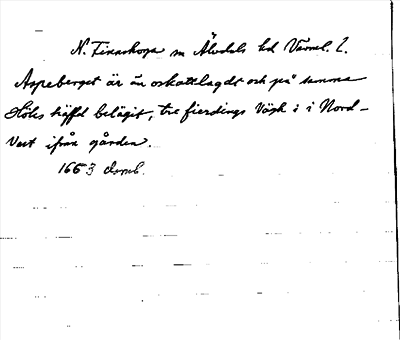 N. Finnskoga sn Älvdals hd Värml. l.
Aspeberget är än oskattlagdt och på samma
Höles häffd belägit, tre fierdings Vägh i i Nord-
Vest ifrån gården.
1663 domb.